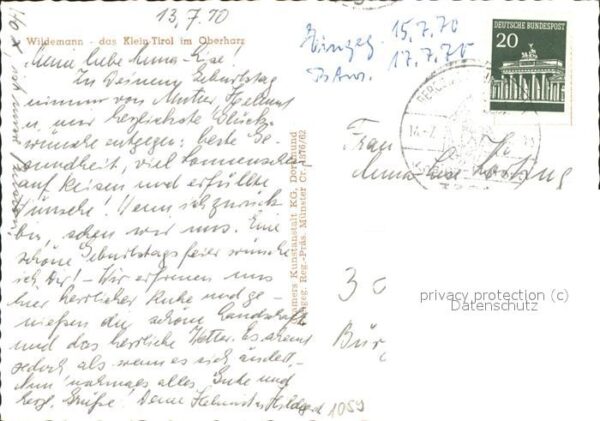 13.7.70
Wildemann - das Klein-Tirol im Oberharz
Meine liebe Anna-Lise!
Zu Deinem Geburtstag
nimm von Mutter, Helmut
u. mir herzlichste Glück-
wünsche entgegen: beste Ge-
sundheit, viel Sonnenschein
auf Reisen und erfüllte
Wünsche! Wenn ich zurück
bin, sehen wir uns. Eine
schöne Geburtstagsfeier wünsche
ich Dir! - Wir erfreuen uns
hier herrlicher Ruhe und ge-
nießen die schöne Landschaft
und das herrliche Wetter. Es scheint
jedoch als wenn es sich ändert.
Nun nochmals alles Gute und
herzl. Grüße! Deine Hildegard
1059
Eingeg. 15.7.70
Btw. 17.7.70
DEUTSCHE BUNDESPOST
20
Frau
Anna-Lise
30
Bür
privacy protection (c)
Datenschutz
Schöners Kunstanstalt KG, Dortmund
Eingeg. Reg.-Präs. Münster Cr. 1876/62